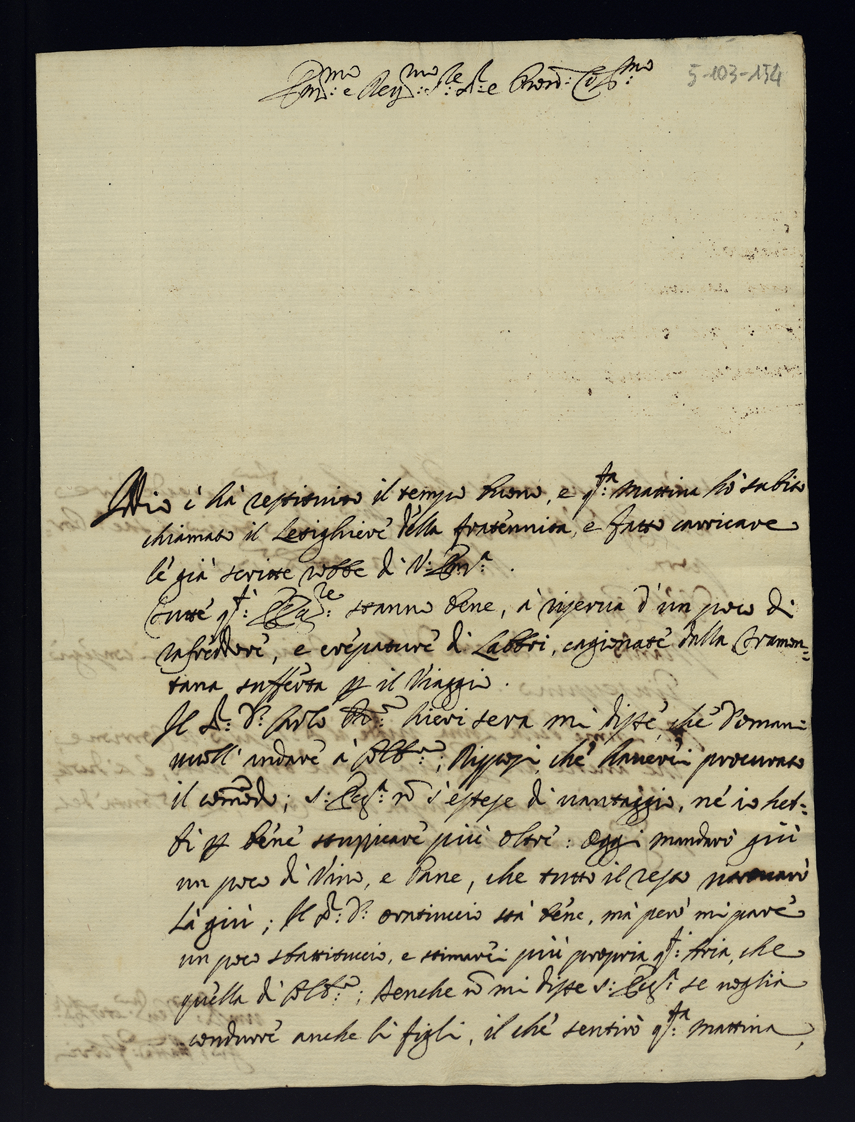 Em:mo e Rev:mo S:re S:r e Pron: Col:mo
5-103-154
Iddio ci hà restituito il tempo buono, e q:ta mattina hò subito
chiamato il Letighiere della fratennita, e fatto carricare
le già scritte robbe di V: Em:a.
Tutte q:i stanno bene, à riserva d'un poco di
rafreddore, e crepature di Labbri, cagionate dalla tramon=
tana sufferta p il Viaggio.
Il S:r D: Carlo hieri sera mi disse, che Domani
vuoll' andare à Alb:o; Risposi, che haverei procurato
il comodo; S: Ecc:a nõ s'estese di vantaggio, né io heb=
bi p bene stuppicare più oltre: Oggi mandarò giù
un poco di Vino, e Pane, che tutto il resto
Là giù; Il S:r D: Oratiuccio stà bene, mà però mi pare
un poco sbattituccio, e stimarei più propria q:i Aria, che
quella di Alb:o; benche nõ mi disse S: Ecc:a se voglia
condurre anche li figli, il che sentirò q:ta mattina,